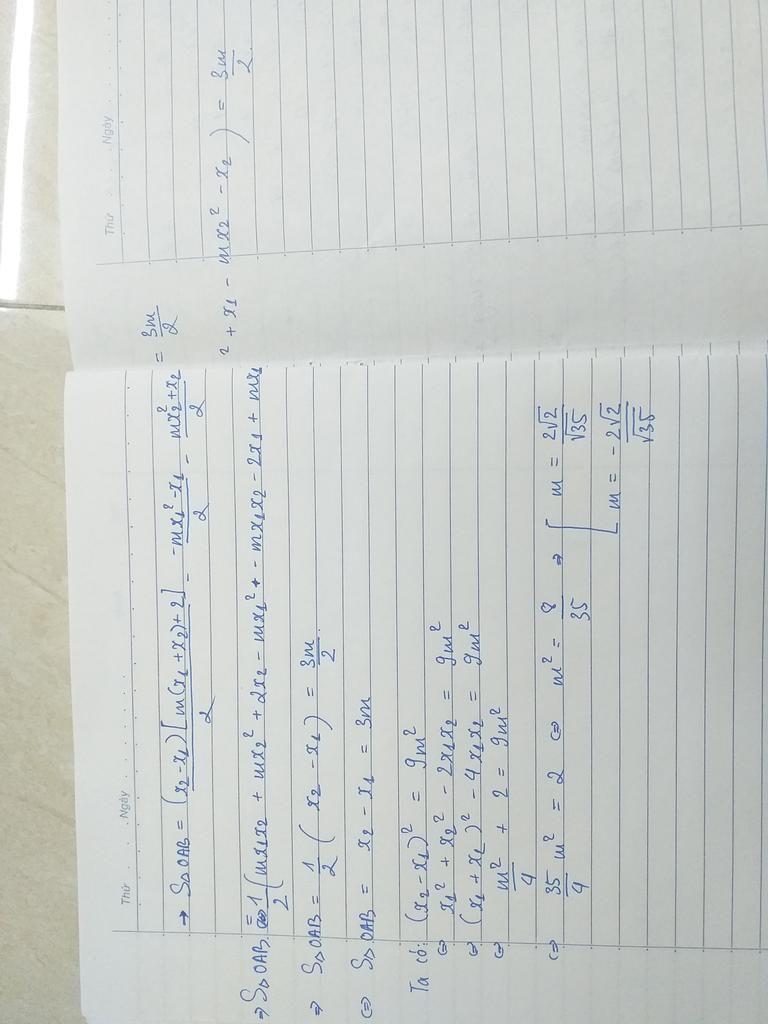 Thứ . . . . . Ngày . . . . . .
Thứ . . . . . Ngày . . . . . .
→ S△OAB = (x₂-x₁)[m(x₁+x₂)+2]/2 - (mx₁²-x₁)/2 - (mx₂²+x₂)/2 = 3m/2
⇒ S△OAB = 1/2 (mx₁x₂ + mx₂² + 2x₂ - mx₁² - mx₁x₂ - 2x₁ + mx₁² + x₁ - mx₂² - x₂) = 3m/2
⇒ S△OAB = 1/2 (x₂ - x₁) = 3m/2
⇔ S△OAB = x₂ - x₁ = 3m
Ta có: (x₂-x₁)² = 9m²
⇔ x₁² + x₂² - 2x₁x₂ = 9m²
⇔ (x₁ + x₁)² - 4x₁x₂ = 9m²
⇔ m²/4 + 2 = 9m²
⇔ 35/4 m² = 2 ⇔ m² = 8/35 ⇒ [ m = 2√2/√35
[ m = -2√2/√35